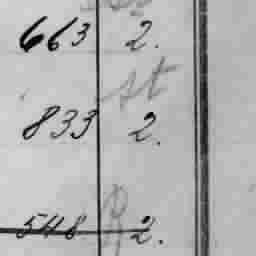 663 2.
st
833 2.
548 2.